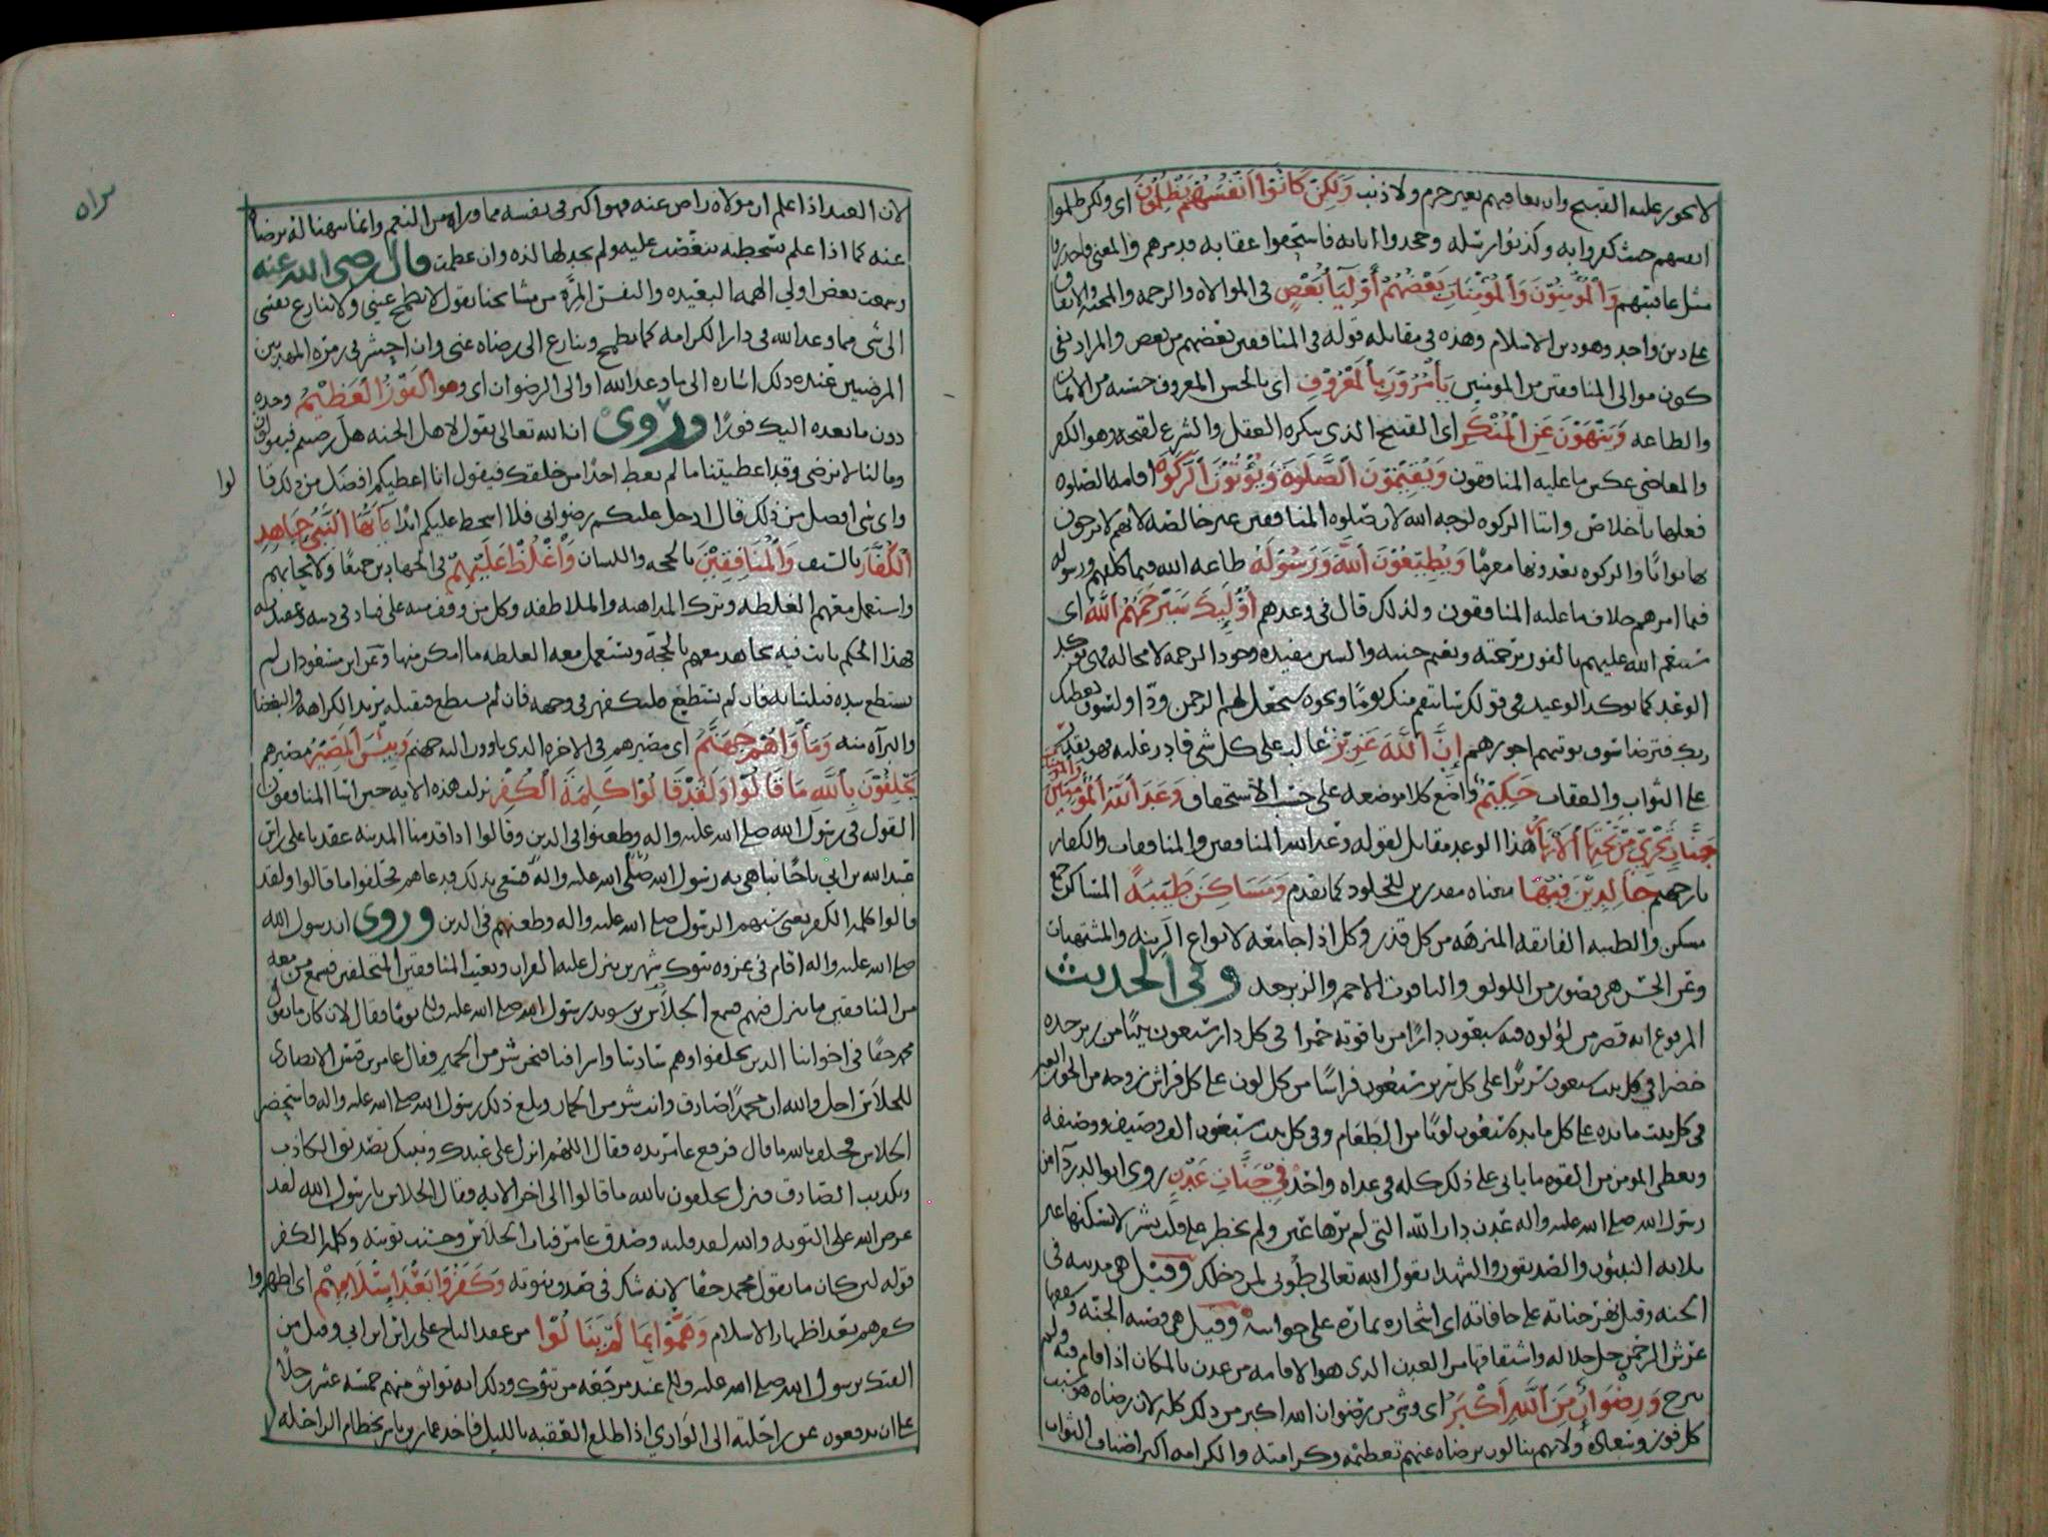 لا يجوز عليه القبيح وان يعاقبهم بغير جرم ولا ذنب وَلَكِنْ كَانُوا أَنْفُسَهُمْ يَظْلِمُونَ اي ولكن ظلموا
انفسهم حيث كفروا به وكذبوا رسله وجحدوا اياته فاستحقوا عقابه
مثل عاقبتهم وَالْمُؤْمِنُونَ وَالْمُؤْمِنَاتِ بَعْضُهُمْ أَوْلِيَاءُ بَعْضٍ في الموالاه والرحمه والمحبه والاتفاق
على دين واحد وهو دين الاسلام وهذه في مقابله قوله في المنافقين بعضهم من بعض والمراد نفي
كون موالي المنافقين من المومنين يَأْمُرُونَ بِالْمَعْرُوفِ اي بالحسن المعروف حسنه من الايمان
والطاعه وَيَنْهَوْنَ عَنِ الْمُنْكَرِ اي القبيح الذي ينكره العقل والشرع لقبحه وهو الكفر
والمعاصي عكس ما عليه المنافقون وَيُقِيمُونَ الصَّلَوةَ وَيُؤْتُونَ الزَّكَوةَ اقامه الصلوه
فعلها باخلاص وايتا الزكوه لوجه الله لان صلوه المنافقين غير خالصه لانهم لا يرجون
بها ثوابًا والزكوه يعدونها مغرمًا وَيُطِيعُونَ اللَّهَ وَرَسُولَهُ طاعه الله فيما كلفهم ورسوله
فيما امرهم خلاف ما عليه المنافقون ولذلك قال في وعدهم أُولَئِكَ سَيَرْحَمُهُمُ اللَّهُ اي
سينعم الله عليهم بالفوز برحمته ونعيم جنته والسين مفيده وجود الرحمه لا محاله فهي توكد
الوعد كما توكد الوعيد في قولك سانتقم منك يومًا ونحوه سيجعل لهم الرحمن ودّا ولسوف يعطيك
ربك فترضا سوف يوتيهم اجورهم إِنَّ اللَّهَ عَزِيزٌ غالب على كل شي قادر عليه فهو يقدر
على الثواب والعقاب حَكِيمٌ واضع كلا موضعه على حسب الاستحقاق وَعَدَ اللَّهُ الْمُؤْمِنِينَ وَالْمُؤْمِنَاتِ
جَنَّاتٍ تَجْرِي مِنْ تَحْتِهَا الْأَنْهَارُ هذا الوعد مقابل لقوله وعد الله المنافقين والمنافقات والكفار
نار جهنم خَالِدِينَ فِيهَا معناه مقدرين للخلود كما تقدم وَمَسَاكِنَ طَيِّبَةً المساكن جمع
مسكن والطيبه الفايقه المنزهه من كل قذر وكل اذا جامعه لانواع الزينه والمشتهيات
وعن الحسن هي قصور من اللولو والياقوت الاحمر والزبرجد وفي الحديث
المرفوع انه قصر من لؤلوه فيه سبعون دارًا من ياقوته حمرا في كل دار سبعون بيتًا من زبرجده
خضرا في كل بيت سبعون سريرًا على كل سرير سبعون فراشًا من كل لون على كل فراش زوجه من الحور العين
في كل بيت مايده على كل مايده سبعون لونًا من الطعام وفي كل بيت سبعون الف وصيف ووصيفه
ويعطى المومن من القوه ما ياتي على ذلك كله في غداه واحده فِي جَنَّاتِ عَدْنٍ روى ابو الدردآ عن
رسول الله صلى الله عليه واله عدن دار الله التي لم ترها عين ولم يخطر على قلب بشر لا يسكنها غير
ثلاثه النبيون والصديقون والشهدا يقول الله تعالى طوبى لمن دخلك وقيل هي مدينه في
الجنه وقيل نهر جناته على حافاته اي اشجاره ثماره على جوانبه وقيل هي قصبه الجنه وسقفها
عرش الرحمن جل جلاله واشتقاقها من العدن الذي هو الاقامه من عدن بالمكان اذا اقام فيه ولم
يبرح وَرِضْوَانٌ مِنَ اللَّهِ أَكْبَرُ اي وشي من رضوان الله اكبر من ذلك كله لان رضاه هو سبب
كل فوز وسعاده ولانهم ينالون برضاه عنهم تعظيمه وكرامته والكرامه اكبر اصناف الثواب
سراه
لان العبد اذا علم ان مولاه راض عنه فهو اكبر في نفسه مما وراه من النعيم وانما يتهنا له برضاه
عنه كما اذا علم بسخطه تنغصت عليه ولم يجد لها لذه وان عظمت قال رضي الله عنه
وسمعت بعض اولي الهمه البعيده والنفس المرّه من مشايخنا يقول لا تطمح عيني ولا تنازع نفسي
الى شي مما وعد الله في دار الكرامه كما تطمح وتنازع الى رضاه عني وان احشر في زمره المهديين
المرضيين عنده ذلك اشاره الى ما وعد الله او الى الرضوان اي وهو الْفَوْزُ الْعَظِيمُ وحده
دون ما يعده الناس فوزًا وروي ان الله تعالى يقول لاهل الجنه هل رضيتم فيقولون
وما لنا لا نرضى وقد اعطيتنا ما لم يعط احدًا من خلقك فيقول انا اعطيكم افضل من ذلك قا
لوا
واي شي افضل من ذلك قال ادخل عليكم رضواني فلا اسخط عليكم ابدًا يَاأَيُّهَا النَّبِيُّ جَاهِدِ
الْكُفَّارَ بالسيف وَالْمُنَافِقِينَ بالحجه واللسان وَاغْلُظْ عَلَيْهِمْ في الجهادين جميعًا ولا تحابهم
واستعمل معهم الغلظه وترك المداهنه والملاطفه وكل من وقف منه على فساد في دينه وعقيدته
فهذا الحكم ثابت فيه يجاهد معهم بالحجة ويستعمل معه الغلظه ما امكن منها وعن ابن مسعود ان لم
يستطع بيده فبلسانه فان لم يستطع فليكفهر في وجهه فان لم يستطع فبقلبه يريد الكراهه والبغضا
والبرآه منه وَمَأْوَاهُمْ جَهَنَّمُ اي مصيرهم في الاخره الذي ياوون اليه جهنم وَبِئْسَ الْمَصِيرُ مصيرهم
يَحْلِفُونَ بِاللَّهِ مَا قَالُوا وَلَقَدْ قَالُوا كَلِمَةَ الْكُفْرِ نزلت هذه الايه حين اسا المنافقون
القول في رسول الله صلى الله عليه واله وطعنوا في الدين وقالوا اذا قدمنا المدينه عقدنا على راس
عبد الله بن ابي تاجًا نباهي به رسول الله صلى الله عليه واله فسعي بذلك فدعاهم فحلفوا ما قالوا ولقد
قالوا كلمه الكفر يعني سبهم الرسول صلى الله عليه واله وطعنهم في الدين وروي ان رسول الله
صلى الله عليه واله اقام في غزوه تبوك شهرين ينزل عليه القران ويعيب المنافقين المتخلفين فسمع من معه
من المنافقين ما ينزل فيهم فسمع الجلاس بن سويد رسول الله صلى الله عليه واله يومًا فقال لان كان ما يقول
محمد حقًا في اخواننا الذين تخلفوا وهم ساداتنا واشرافنا فنحن شر من الحمير فقال عامر بن قيس الانصاري
للجلاس اجل والله ان محمدًا صادق وانت شر من الحمار وبلغ ذلك رسول الله صلى الله عليه واله فاستحضر
الجلاس فحلف بالله ما قال فرفع عامر يده فقال اللهم انزل على عبدك ونبيك تصديق الكاذب
وتكذيب الصادق فنزل يحلفون بالله ما قالوا الى اخر الايه فقال الجلاس يا رسول الله لقد
عرض الله على التوبه والله لقد قلته وصدق عامر فتاب الجلاس وحسنت توبته وكلمه الكفر
قوله لئن كان ما يقول محمد حقا لانه شك في صدق نبوته وَكَفَرُوا بَعْدَ إِسْلَامِهِمْ اي اظهروا
كفرهم بعد اظهار الاسلام وَهَمُّوا بِمَا لَمْ يَنَالُوا من عقد التاج على راس ابن ابي وقيل من
الفتك برسول الله صلى الله عليه واله عند مرجعه من تبوك وذلك انه تواثق منهم خمسة عشر رجلًا
على ان يدفعوه عن راحلته الى الوادي اذا اطلع العقبه بالليل فاخذ عمار بن ياسر بخطام الراحله